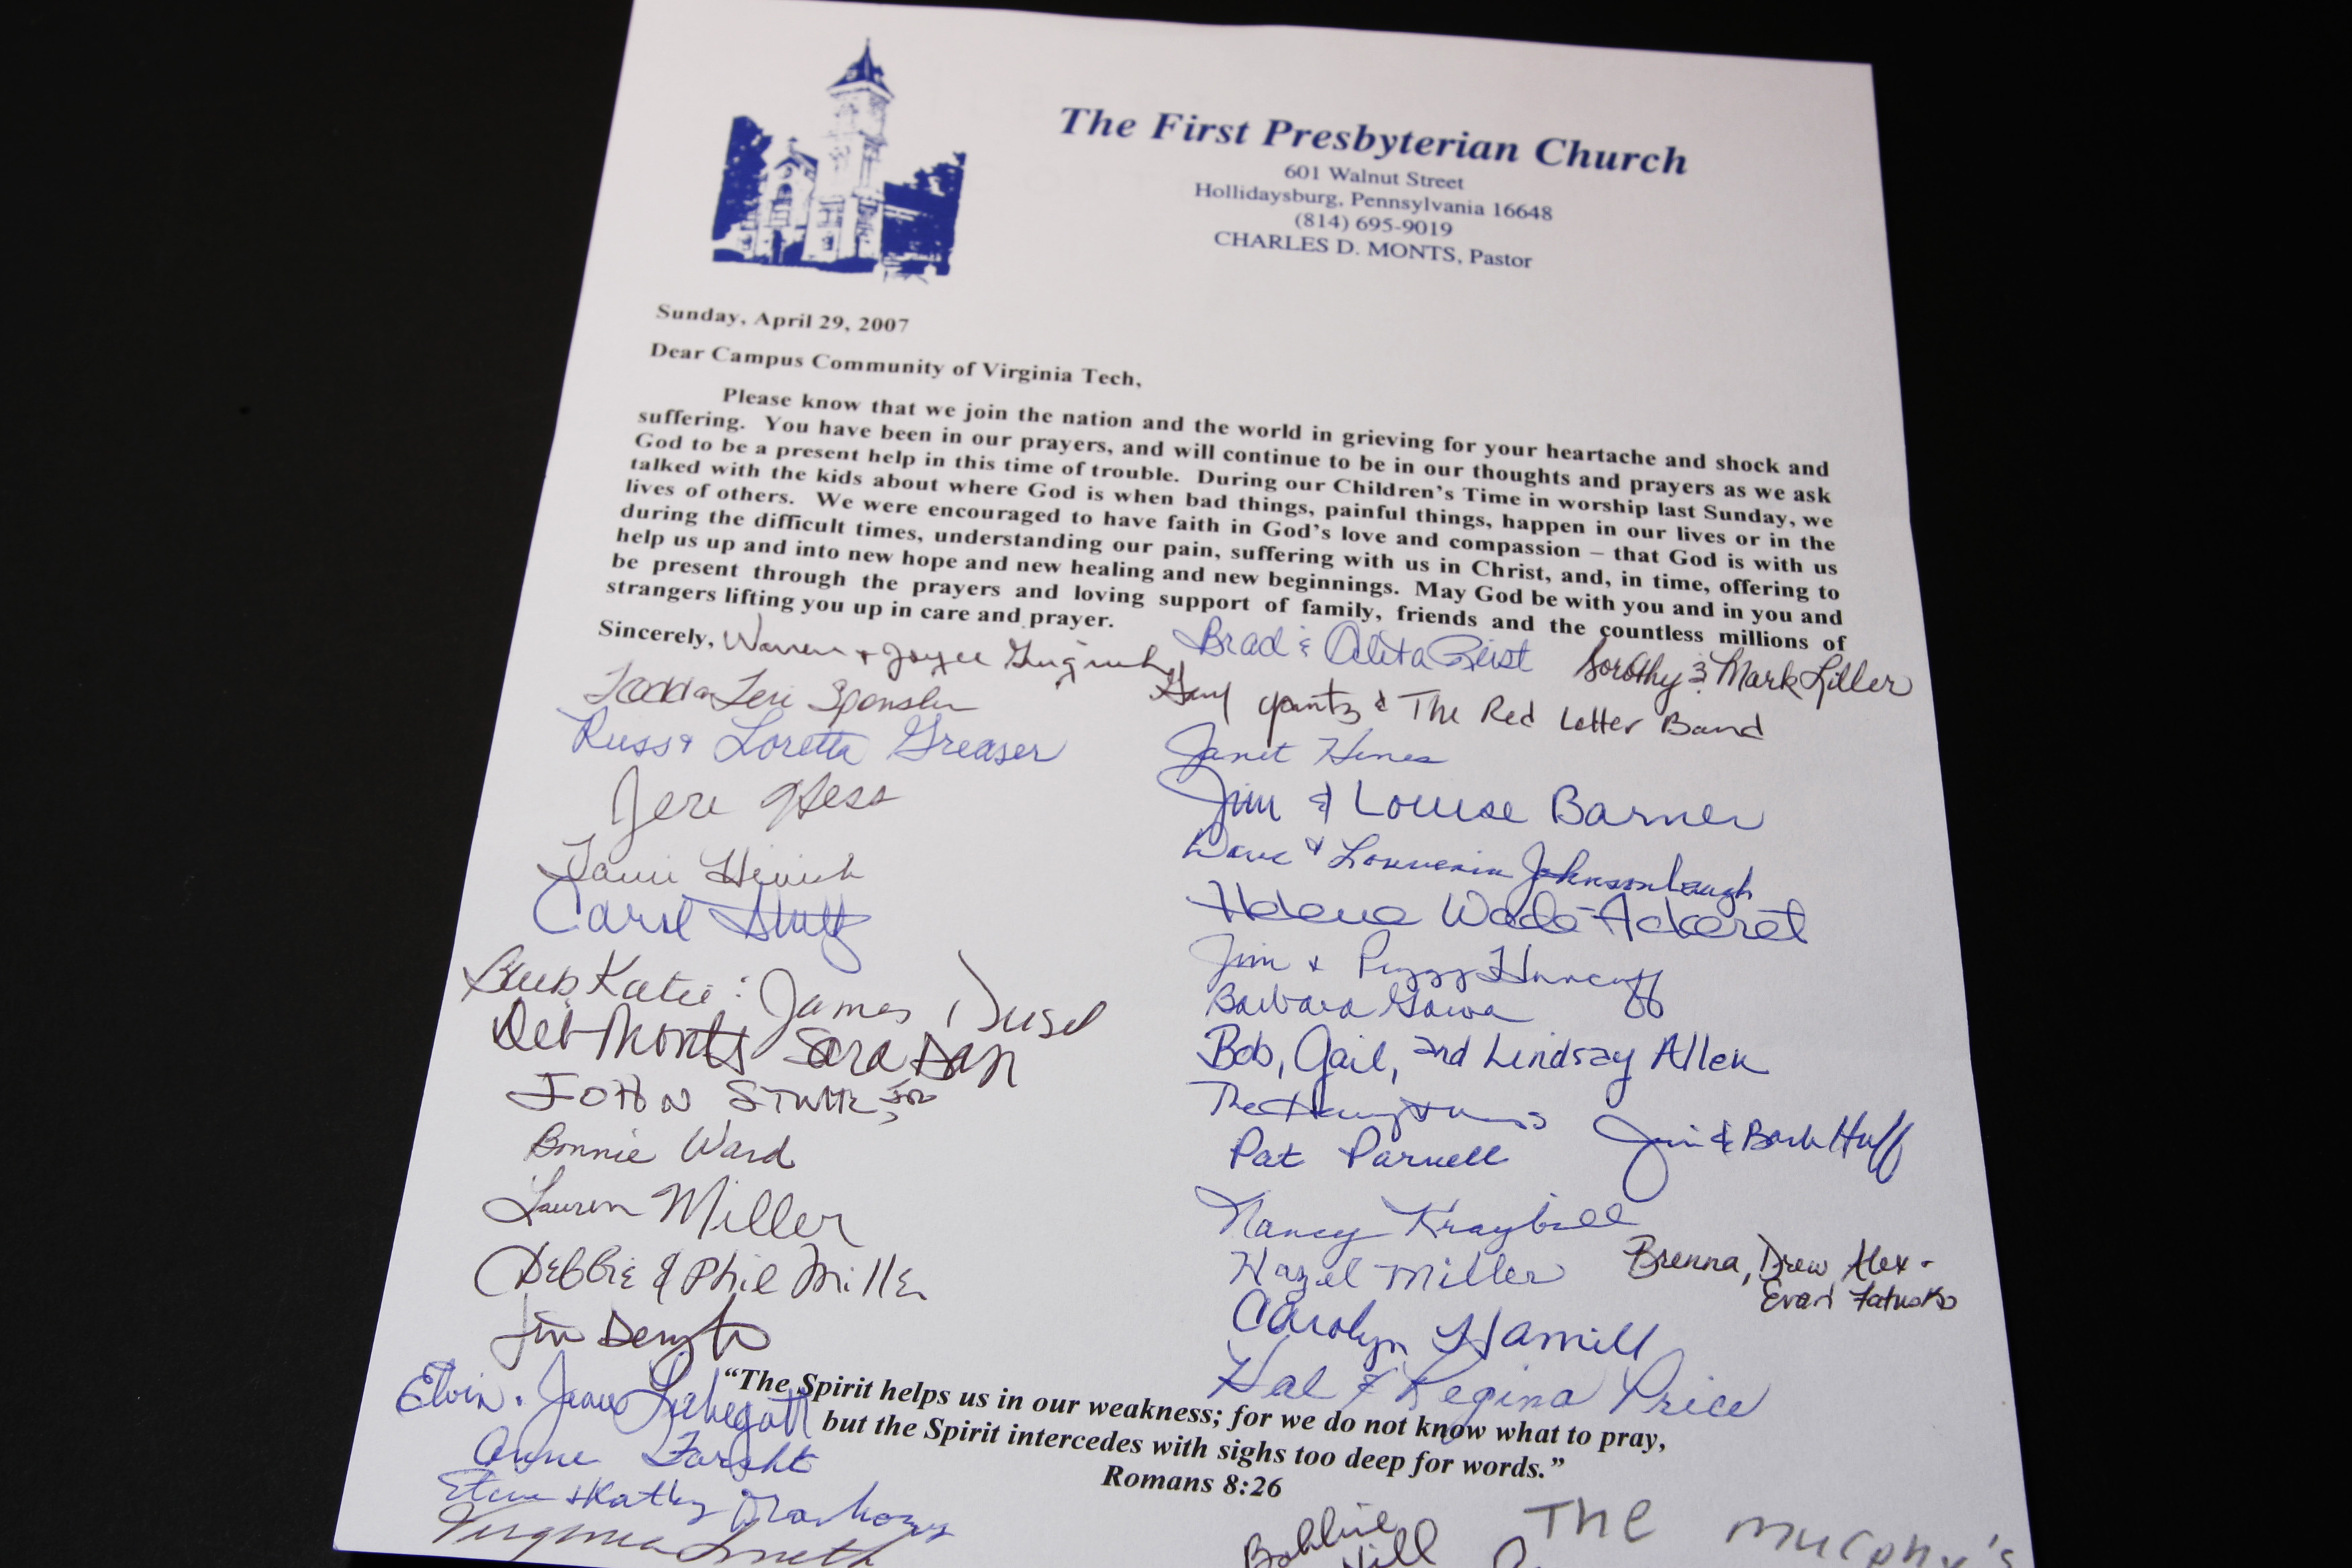 The First Presbyterian Church
601 Walnut Street
Hollidaysburg, Pennsylvania 16648
(814) 695-9019
CHARLES D. MONTS, Pastor
Sunday, April 29, 2007
Dear Campus Community of Virginia Tech,
Please know that we join the nation and the world in grieving for your heartache and shock and
suffering. You have been in our prayers, and will continue to be in our thoughts and prayers as we ask
God to be a present help in this time of trouble. During our Children's Time in worship last Sunday, we
talked with the kids about where God is when bad things, painful things, happen in our lives or in the
lives of others. We were encouraged to have faith in God's love and compassion – that God is with us
during the difficult times, understanding our pain, suffering with us in Christ, and, in time, offering to
help us up and into new hope and new healing and new beginnings. May God be with you and in you and
be present through the prayers and loving support of family, friends and the countless millions of
strangers lifting you up in care and prayer.
Sincerely, Warren + Joyce
Brad & Alita Geist
Dorothy & Mark Liller
Teri
& The Red Letter Band
Russ & Loretta Greaser
Janet Hines
Jere Hess
Jim & Louise Barner
Dave & Johnsonbaugh
Carol
Helene Wade-Ackeret
Jim + Peggy
Katie : James
Barbara
Deb Monts Sara Dan
Bob, Gail, and Lindsay Allen
JOHN
The
Jim & Barb Huff
Bonnie Ward
Pat Parnell
Lauren Miller
Nancy Kraybill
Debbie & Phil Miller
Hazel Miller
Brenna, Drew, Alex -
Evan
Jim
Carolyn Hamill
Hal & Regina Price
Elvin . Jean
"The Spirit helps us in our weakness; for we do not know what to pray,
but the Spirit intercedes with sighs too deep for words."
Romans 8:26
Anne
+ Kathy
Virginia Smith
Bobbie
Hill
The Murphy's